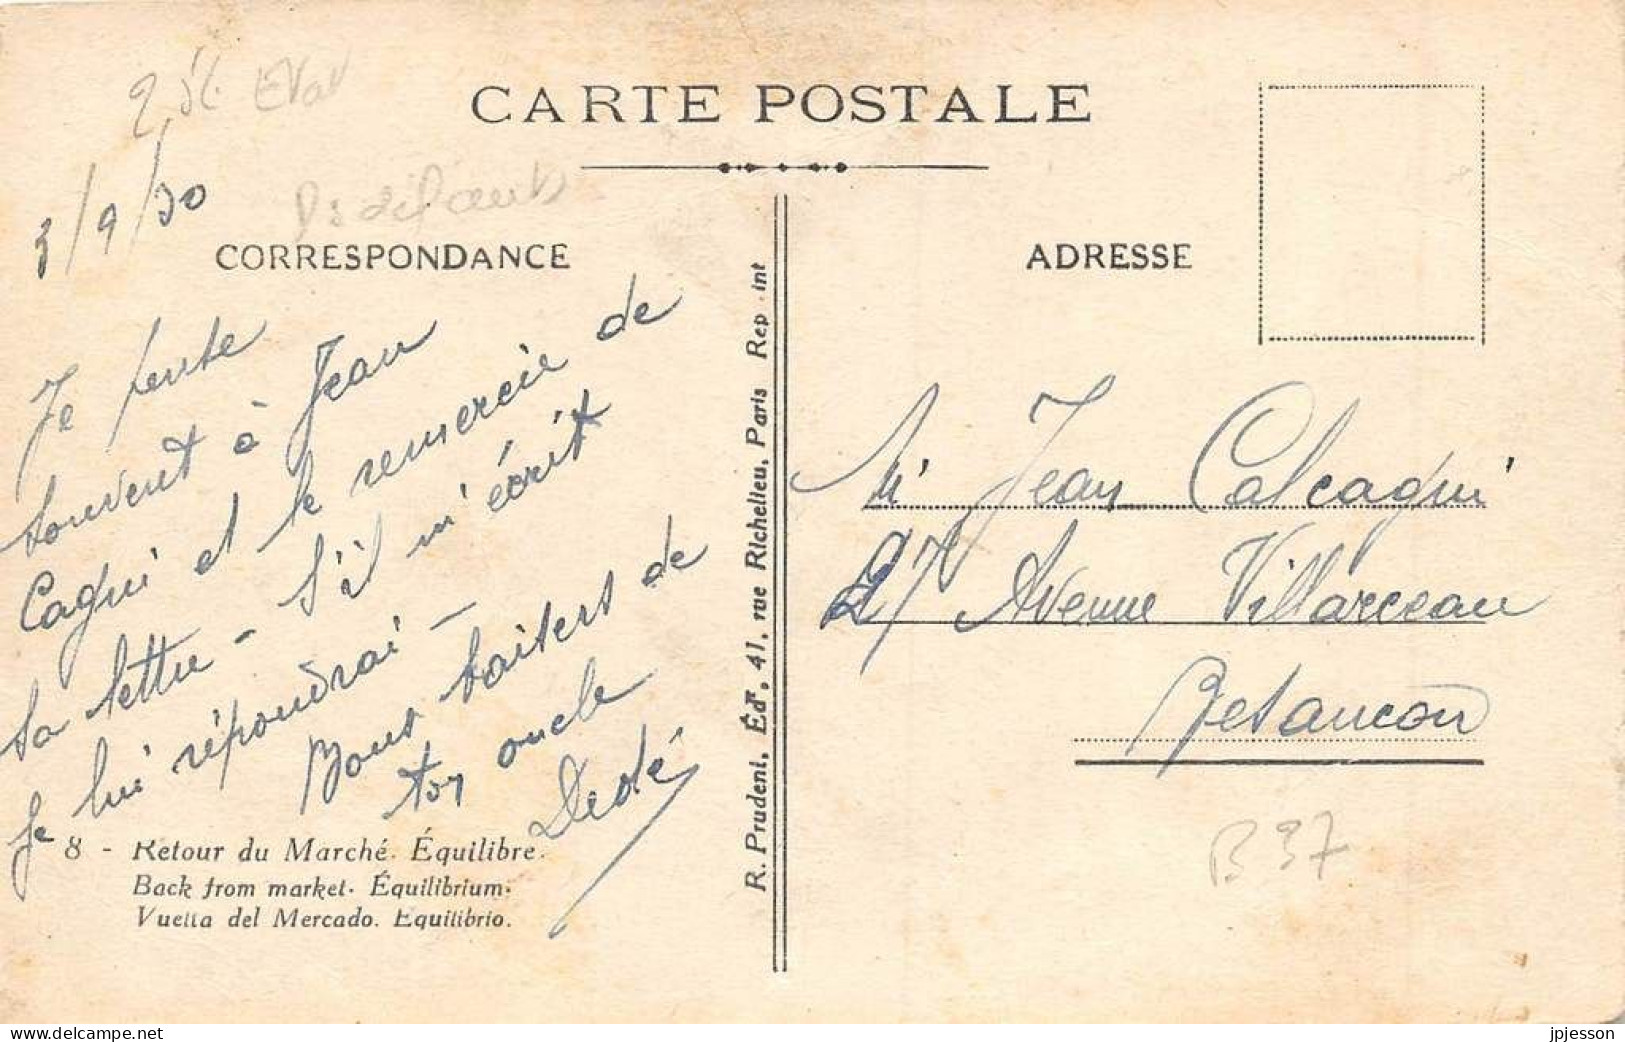 CARTE POSTALE
3/9/30
CORRESPONDANCE
Je pense
souvent à Jean
Cagni et le remercie de
sa lettre - s'il m'écrit
je lui répondrai -
Bons baisers de
ton oncle
Dédé
8 - Retour du Marché. Équilibre.
Back from market. Équilibrium.
Vuelta del Mercado. Equilibrio.
R. Prudent, Édr, 41, rue Richelieu, Paris Rep. int
ADRESSE
Mr Jean Calcagni
27 Avenue Villarceau
Besançon
B 37
www.delcampe.net
jpjesson